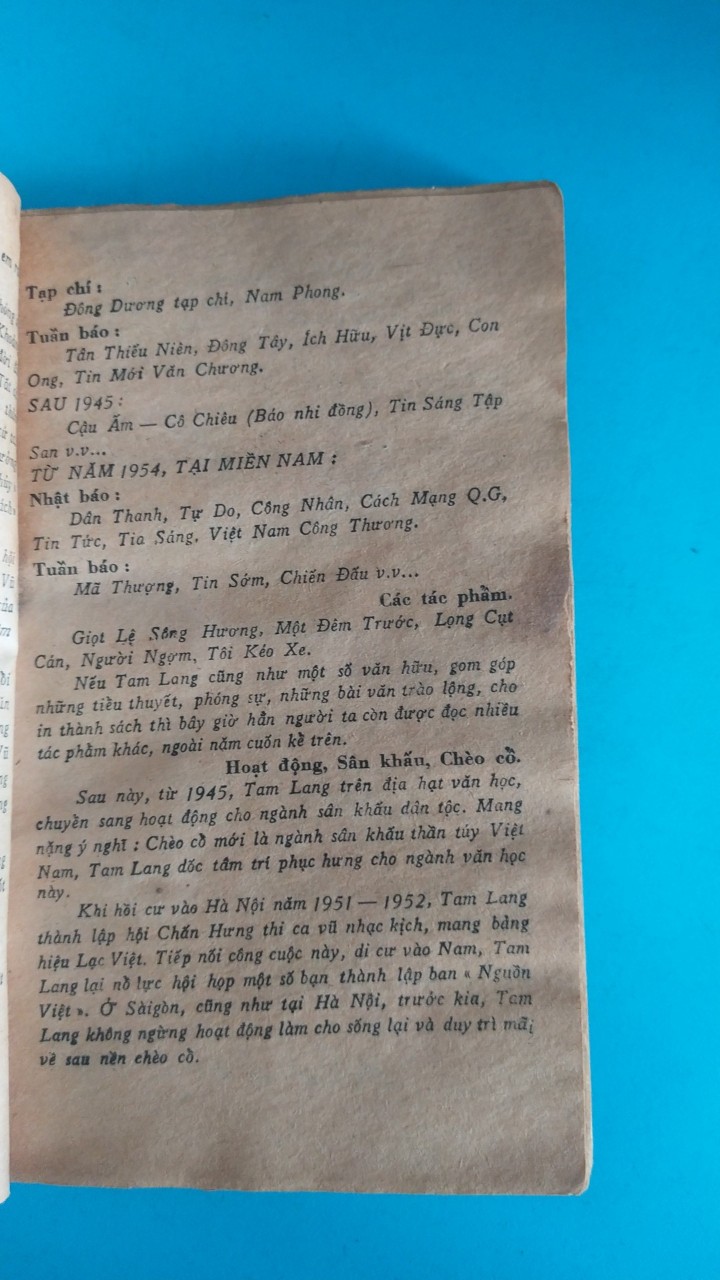 Tạp chí :
Đông Dương tạp chí, Nam Phong.
Tuần báo :
Tân Thiếu Niên, Đông Tây, Ích Hữu, Vịt Đực, Con
Ong, Tin Mới Văn Chương.
SAU 1945 :
Cậu Ấm — Cô Chiêu (Báo nhi đồng), Tin Sáng Tập
San v.v...
TỪ NĂM 1954, TẠI MIỀN NAM :
Nhật báo :
Dân Thanh, Tự Do, Công Nhân, Cách Mạng Q.G,
Tin Tức, Tia Sáng, Việt Nam Công Thương.
Tuần báo :
Mã Thượng, Tin Sớm, Chiến Đấu v.v...
Các tác phẩm.
Giọt Lệ Sông Hương, Một Đêm Trước, Lọng Cụt
Cán, Người Ngợm, Tôi Kéo Xe.
Nếu Tam Lang cũng như một số văn hữu, gom góp
những tiểu thuyết, phóng sự, những bài văn trào lộng, cho
in thành sách thì bây giờ hẳn người ta còn được đọc nhiều
tác phẩm khác, ngoài năm cuốn kể trên.
Hoạt động, Sân khấu, Chèo cổ.
Sau này, từ 1945, Tam Lang trên địa hạt văn học,
chuyển sang hoạt động cho ngành sân khấu dân tộc. Mang
nặng ý nghĩ : Chèo cổ mới là ngành sân khấu thần túy Việt
Nam, Tam Lang dốc tâm trí phục hưng cho ngành văn học
này.
Khi hồi cư vào Hà Nội năm 1951 — 1952, Tam Lang
thành lập hội Chấn Hưng thi ca vũ nhạc kịch, mang bảng
hiệu Lạc Việt. Tiếp nối công cuộc này, di cư vào Nam, Tam
Lang lại nỗ lực hội họp một số bạn thành lập ban « Nguồn
Việt ». Ở Sàigòn, cũng như tại Hà Nội, trước kia, Tam
Lang không ngừng hoạt động làm cho sống lại và duy trì mãi
về sau nền chèo cổ.